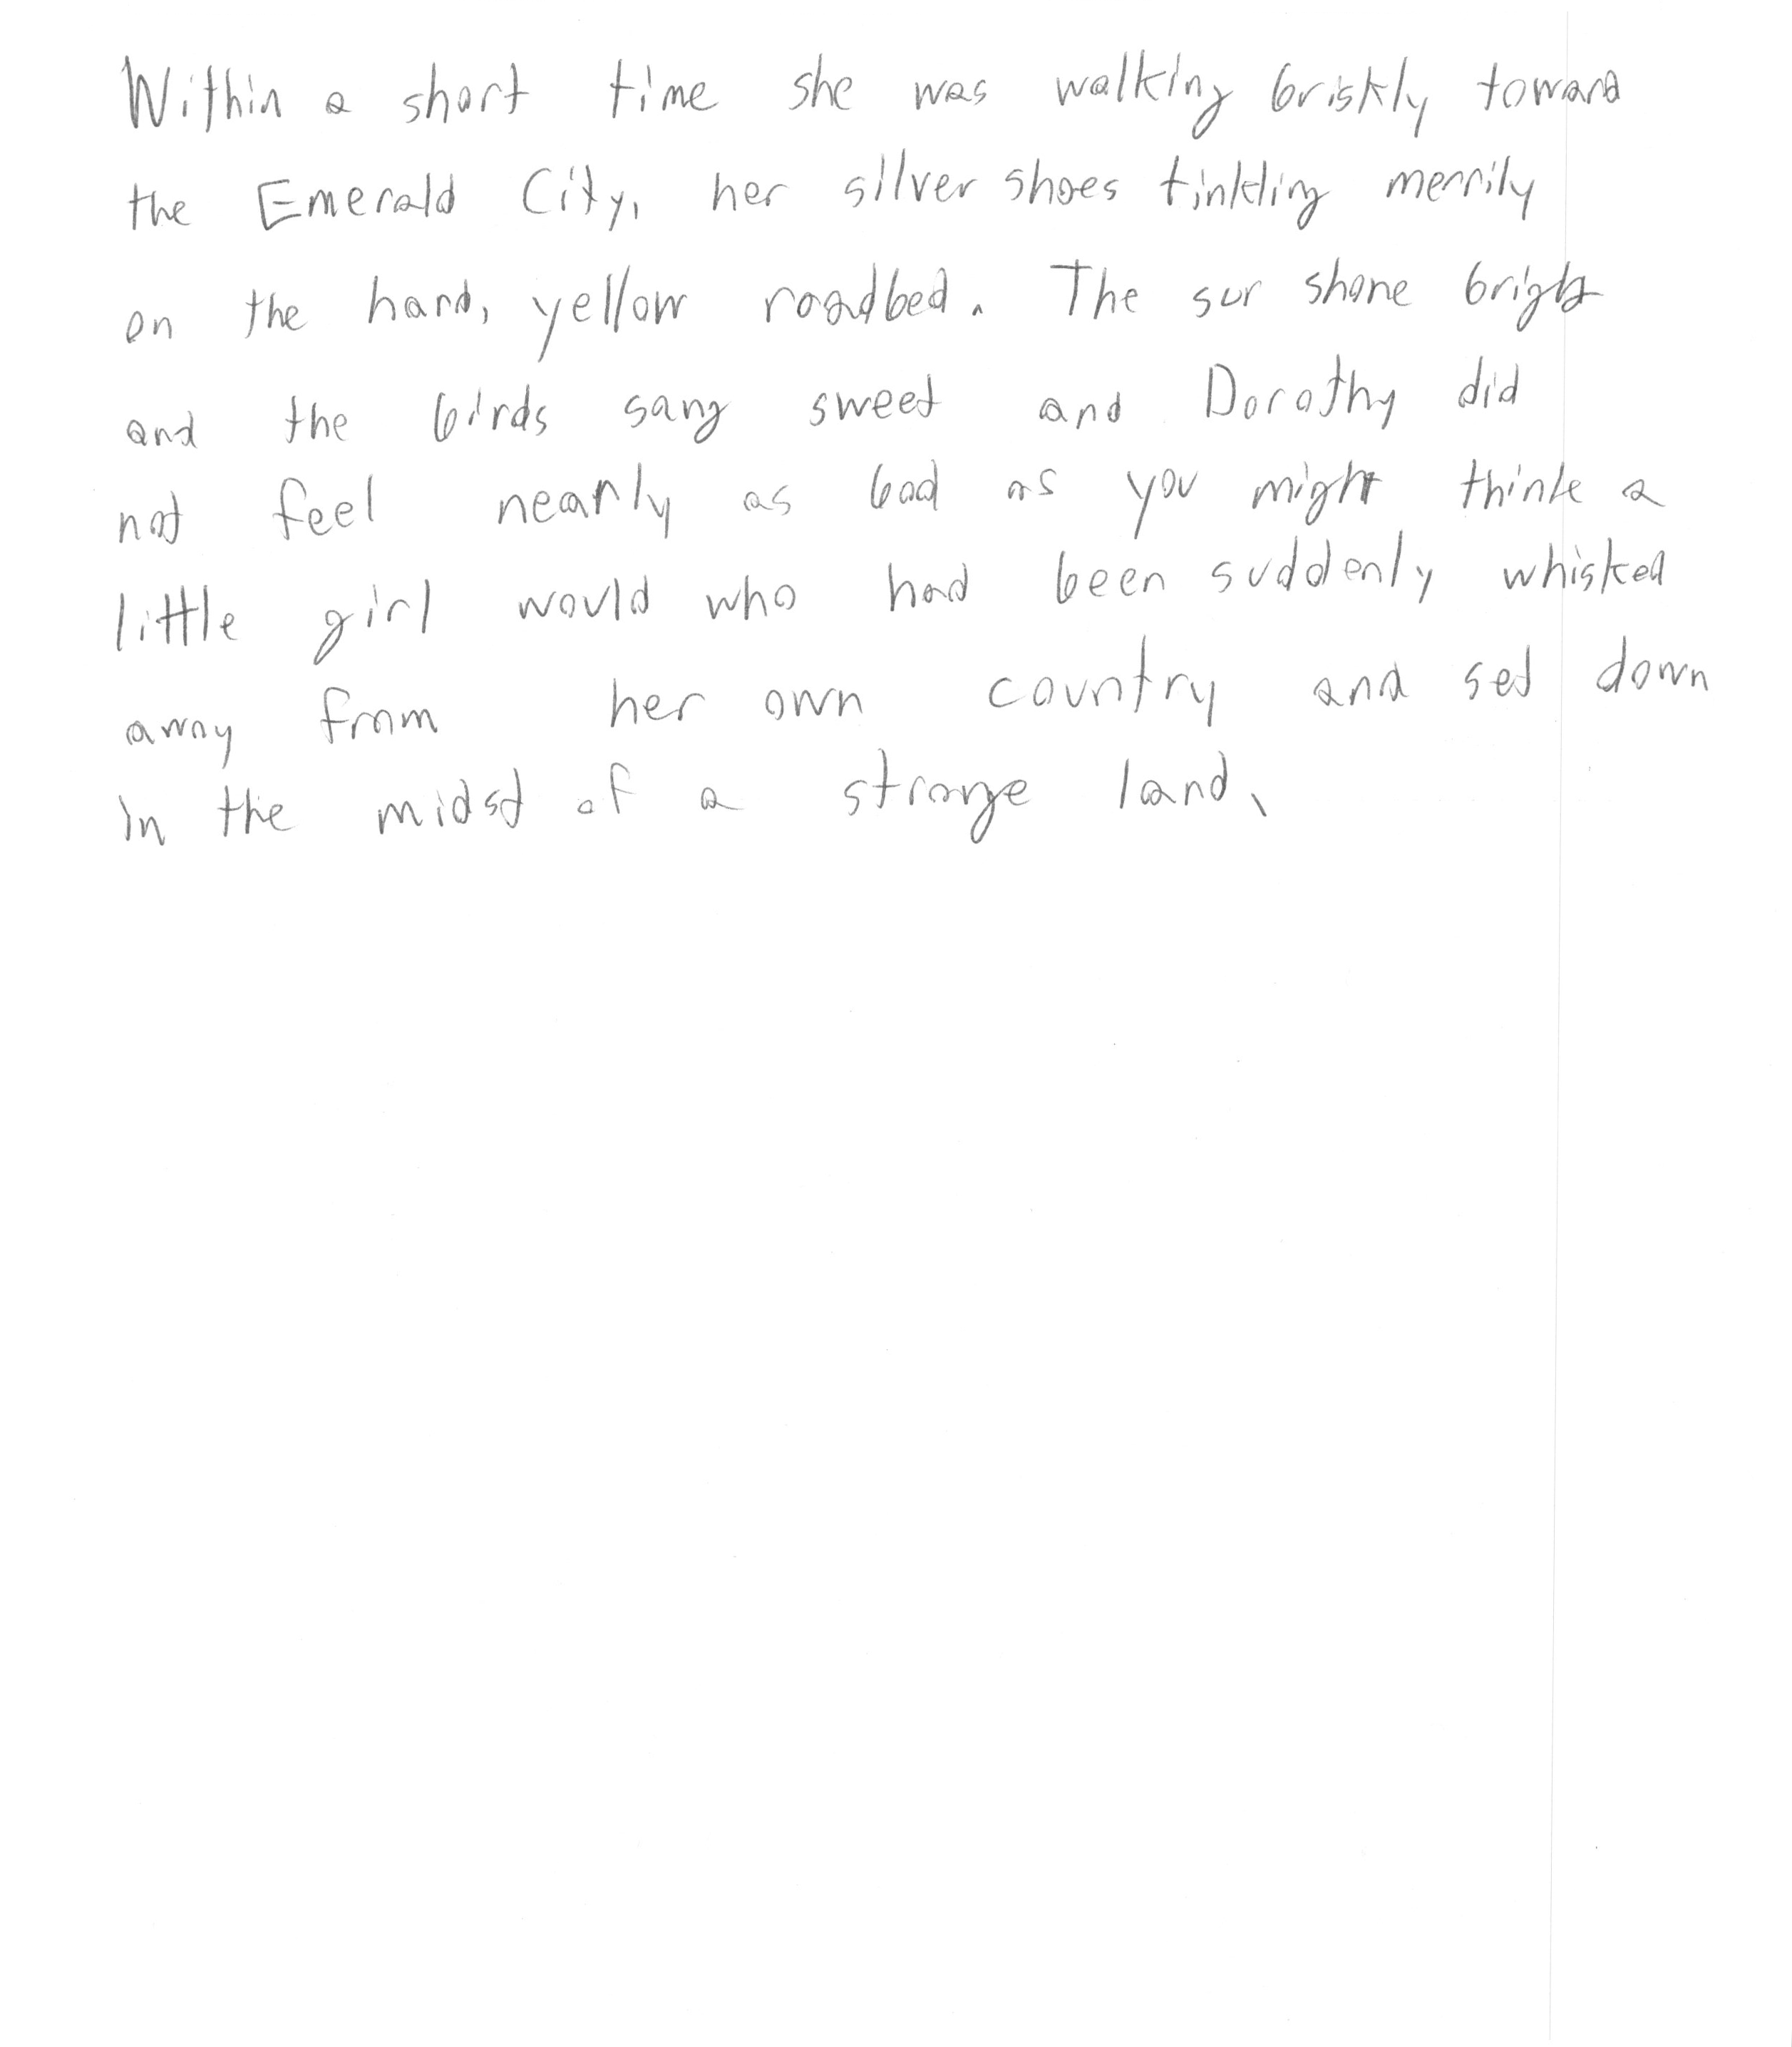 Within a short time she was walking briskly toward
the Emerald City, her silver shoes tinkling merrily
on the hard, yellow roadbed. The sun shone bright
and the birds sang sweet and Dorothy did
not feel nearly as bad as you might think a
little girl would who had been suddenly whisked
away from her own country and set down
in the midst of a strange land.